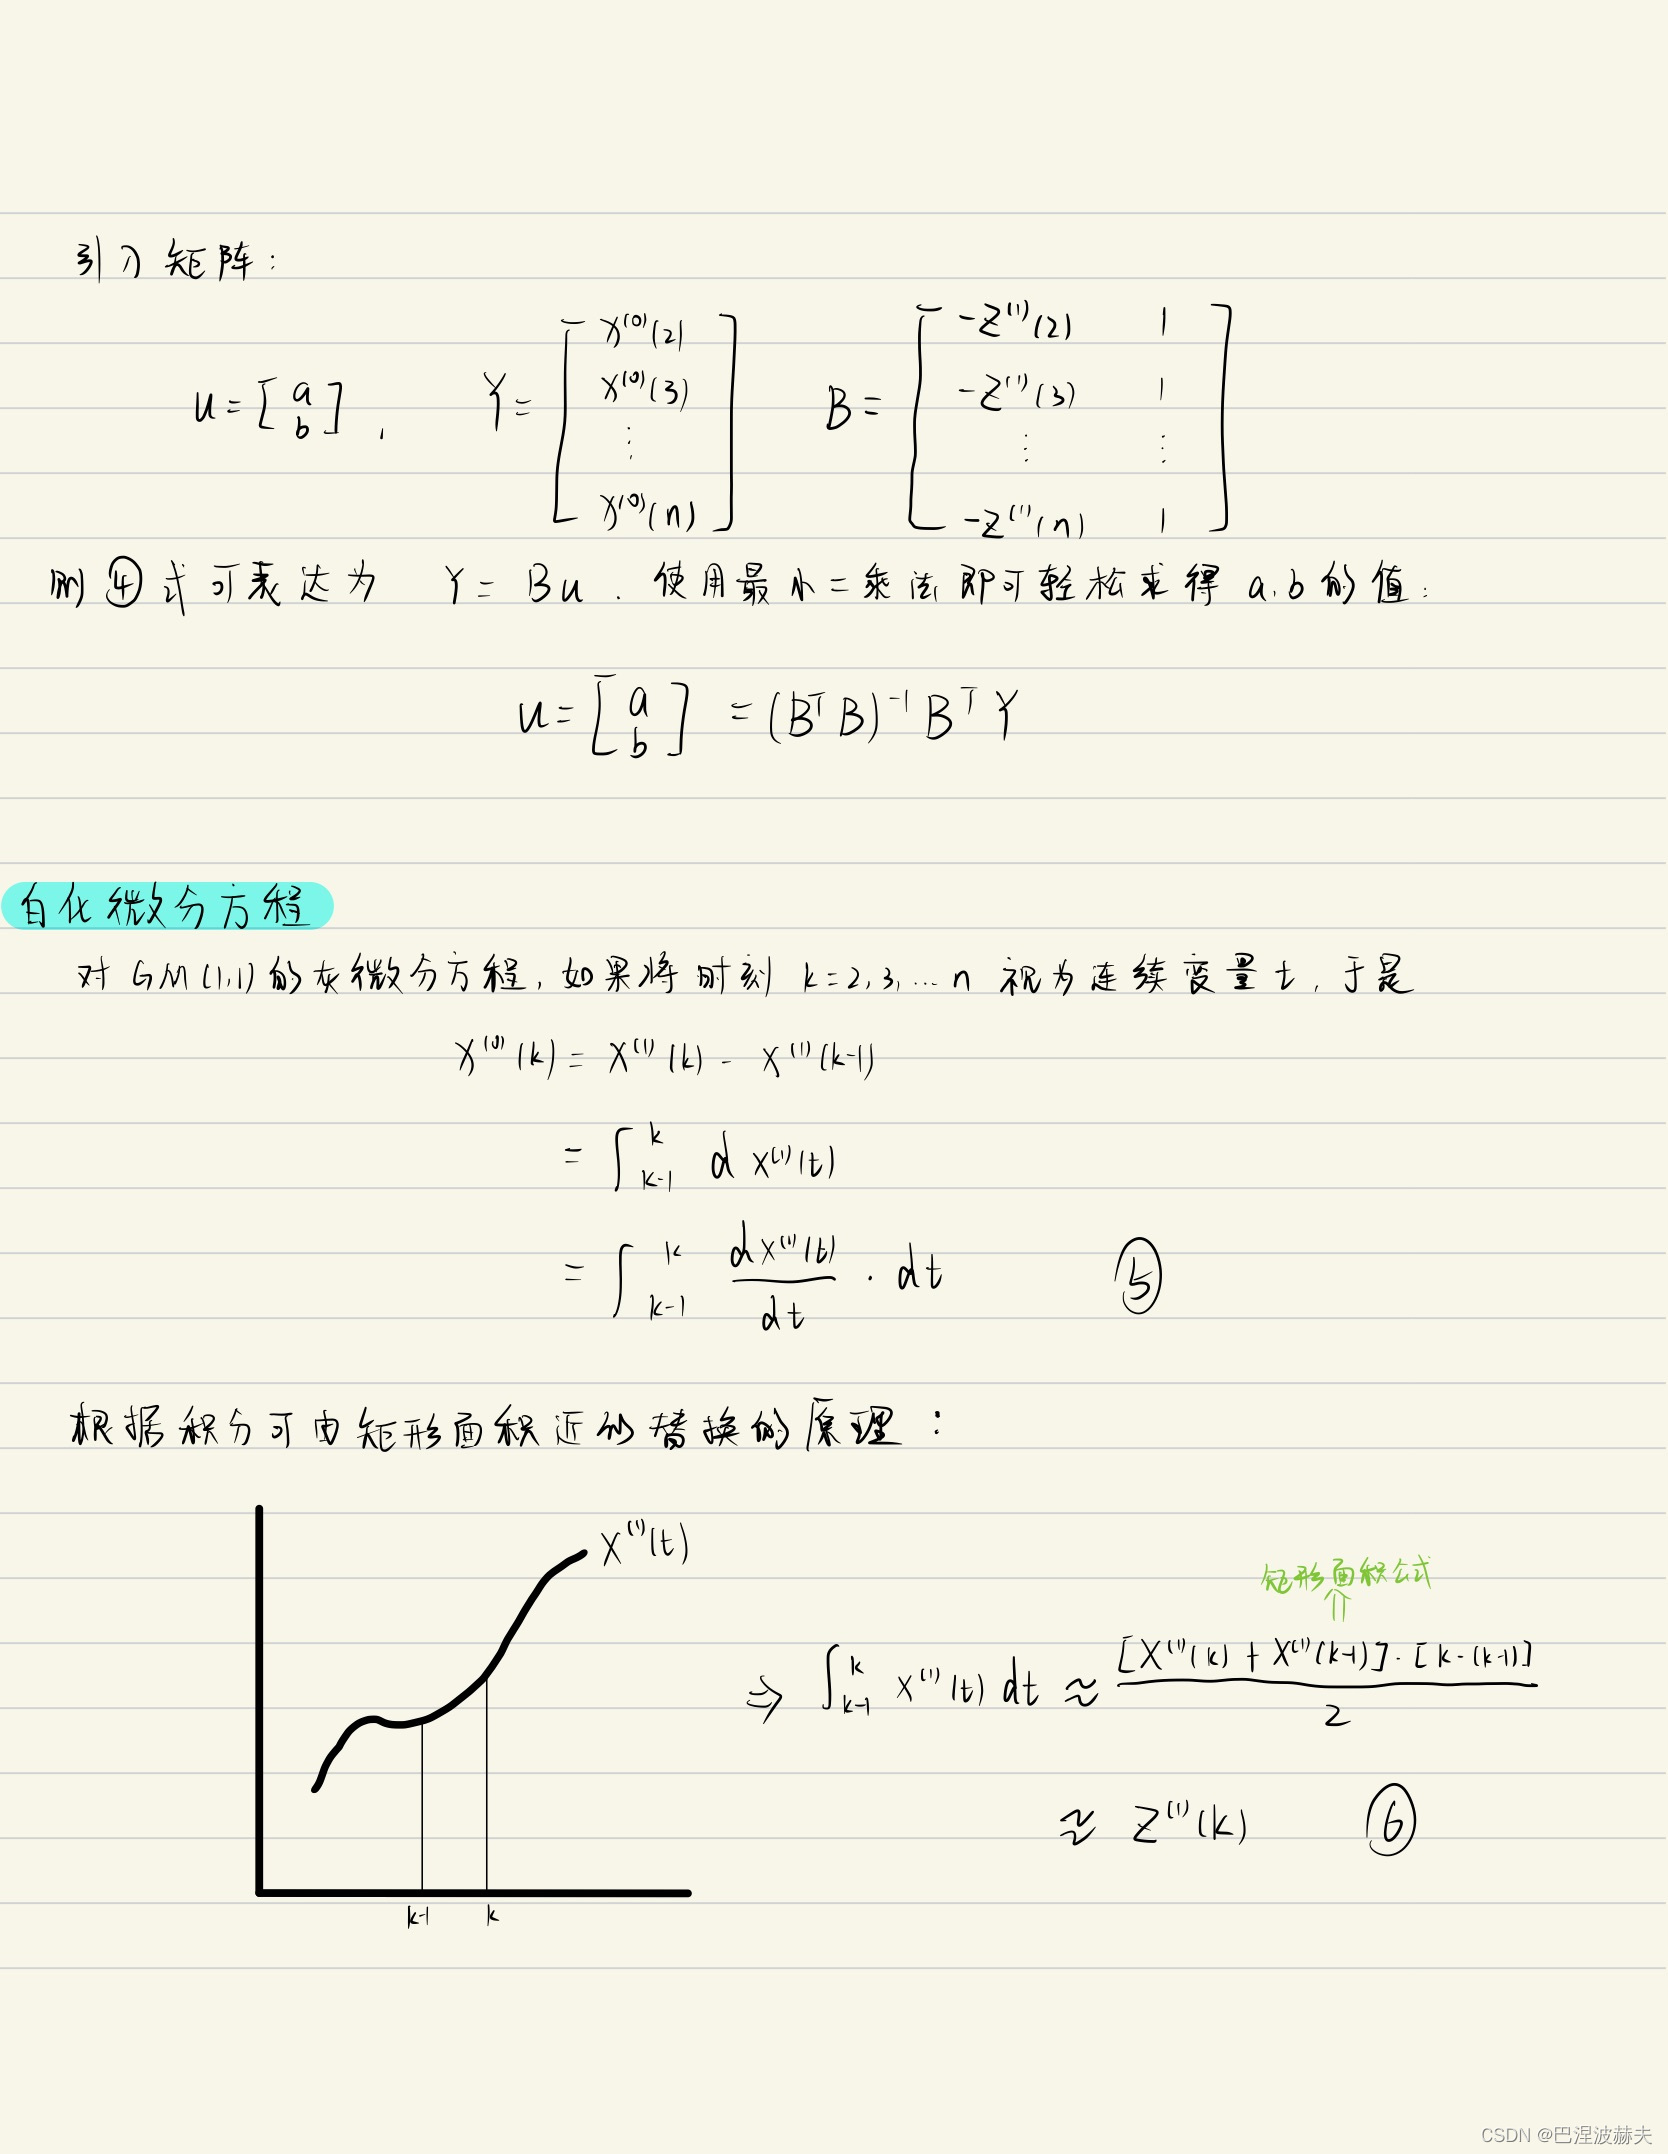 引入矩阵:
u = [a b], Y = [X^(0)(2) X^(0)(3) ⋮ X^(0)(n)] B = [-Z^(1)(2) 1 -Z^(1)(3) 1 ⋮ ⋮ -Z^(1)(n) 1]
则④式可表达为 Y = Bu. 使用最小二乘法即可轻松求得 a,b 的值:
u = [a b] = (B^T B)^-1 B^T Y
白化微分方程
对 GM(1,1)的灰微分方程,如果将时刻 k=2,3,…n 视为连续变量 t, 于是
X^(0)(k) = X^(1)(k) - X^(1)(k-1)
= ∫_{k-1}^{k} d X^(1)(t)
= ∫_{k-1}^{k} dX^(1)(t)/dt · dt ⑤
根据积分可由矩形面积近似替换的原理:
X^(1)(t)
矩形面积公式
⇒ ∫_{k-1}^{k} X^(1)(t) dt ≈ [X^(1)(k) + X^(1)(k-1)]·[k-(k-1)] / 2
≈ Z^(1)(k) ⑥
k-1 k
CSDN @巴涅波赫夫